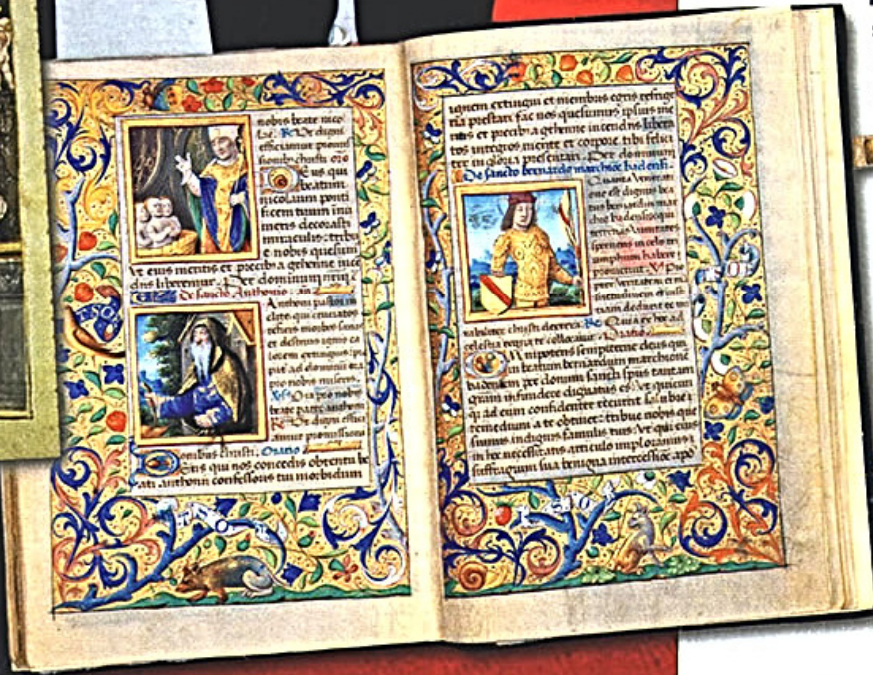 nobis beate nico
lae. Ut digni
efficiamur promis
sionib christi oro
Deus qui
beatum
nicolaum ponti
ficem tuum inu
meris decorasti
miraculis: tribu
e nobis quesum
Vt eius meritis et precib a gehenne ince
diis liberemur. Per dominum
De sancto Anthonio. an
Anthoni pastor in
clite. qui cruciatos
reficis morbos sanas
et destruis ignis ca
lorem extinguis: pi
pate ad dominum ora
pro nobis miseris.
Ora pro nobis
beate pater anthoni
Ut digni effici
amur promissioni
onibus christi. Oratio
Deus qui nos concedis obtentu be
ati anthonii confessoris tui morbidum
ignem extingui et membris egris refrige
ria prestari fac nos quesumus ipsius me
ritis et precib a gehenne incendiis libera
tos integros mente et corpore tibi felici
ter in gloria presentari. Per dominum
De sancto bernardo marchioe badensi.
Quanta venerati
one est dignus bea
tus bernardus mar
chio badensis qui
terrenas vanitates
spernens in celis tri
umphum habere
promeruit. Pro
pter veritatem et
iustitudinem
deduxit te mi
rabiliter christi dextera. Quia ex hoc ad
celestia regna te collocauit. Oratio
Omnipotens sempiterne deus qui
beatum bernardum marchione
badensem per donum sancti spus tantam
gram infundere dignatus es: Vt quicun
qz ad eum confidenter recurrit salubre
remedium a te obtinet: tribue nobis que
sumus indignis famulis tuis: Vt qui eius
in hec necessitatis articulo imploramus
suffragium sua benigna intercessioe apo